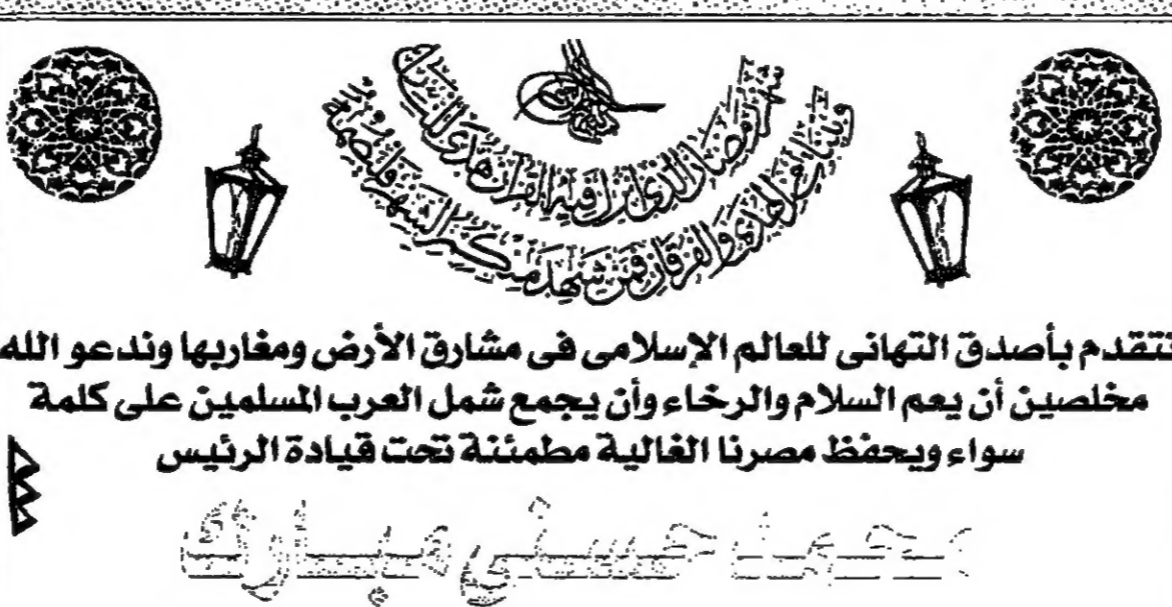 شهر رمضان الذى أنزل فيه القرآن هدى للناس
وبينات من الهدى والفرقان فمن شهد منكم الشهر فليصمه
نتقدم بأصدق التهانى للعالم الإسلامى فى مشارق الأرض ومغاربها وندعو الله
مخلصين أن يعم السلام والرخاء وأن يجمع شمل العرب المسلمين على كلمة
سواء ويحفظ مصرنا الغالية مطمئنة تحت قيادة الرئيس
محمد حسنى مبارك